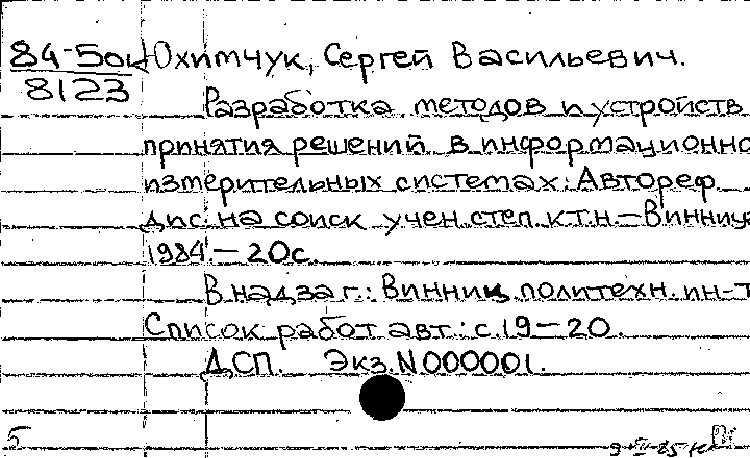 84-5ок Охимчук, Сергей Васильевич.
8123
Разработка методов и устройств
принятия решений в информационно
измерительных системах: Автореф.
дис. на соиск учен. степ. к.т.н. – Винница
1984. – 20с.
В надзаг.: Винниц. политехн. ин-т
Список работ авт.: с.19–20.
ДСП. Экз. N000001.
5